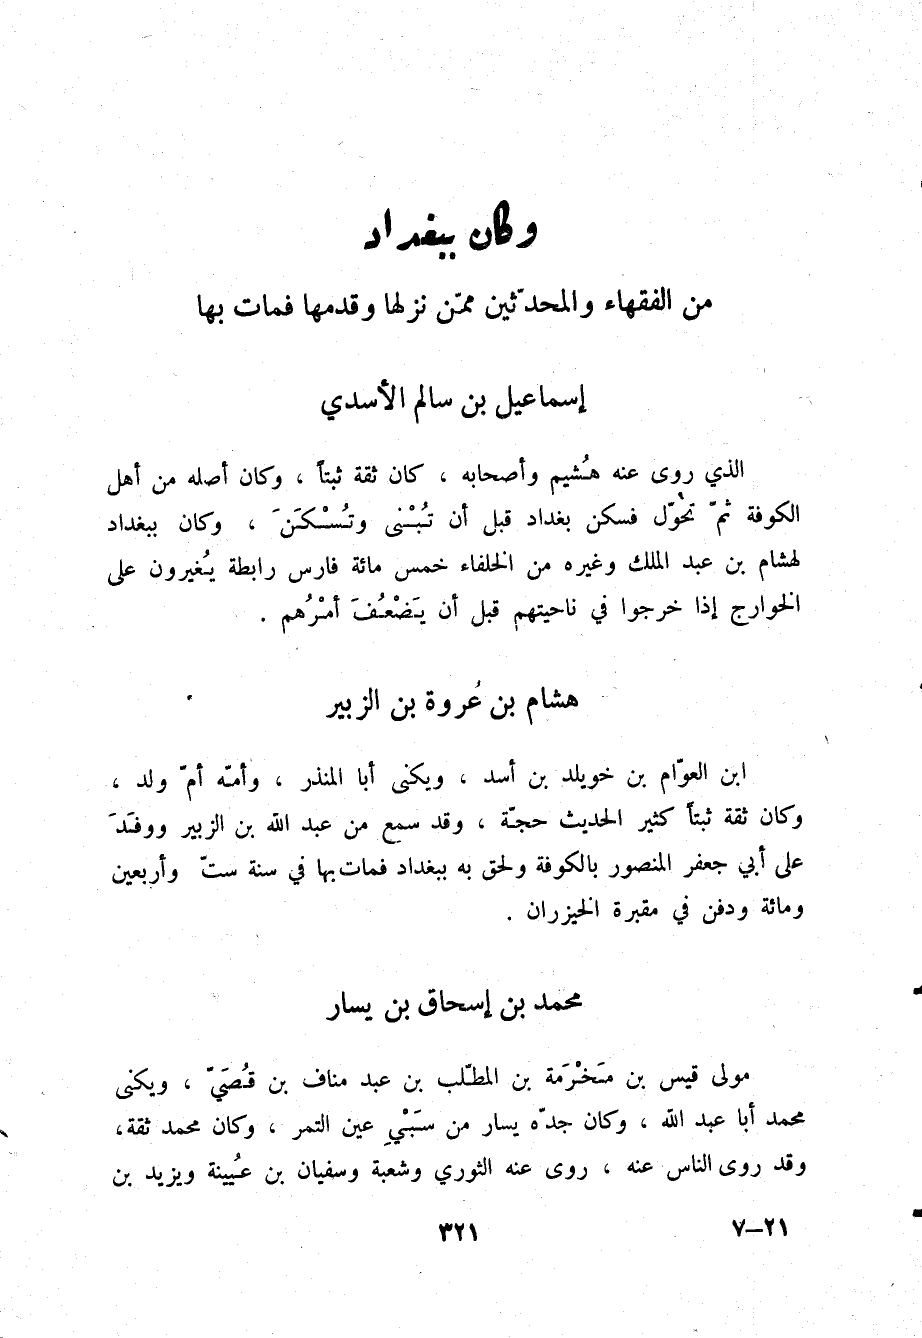 وكان ببغداد
من الفقهاء والمحدّثين ممّن نزلها وقدمها فمات بها
إسماعيل بن سالم الأسدي
الذي روى عنه هُشيم وأصحابه ، كان ثقة ثبتاً ، وكان أصله من أهل
الكوفة ثمّ تحوّل فسكن بغداد قبل أن تُبْنى وتُسْكَنَ ، وكان ببغداد
لهشام بن عبد الملك وغيره من الخلفاء خمس مائة فارس رابطة يُغيرون على
الخوارج إذا خرجوا في ناحيتهم قبل أن يَضْعُفَ أمْرُهم .
هشام بن عُروة بن الزبير
ابن العوّام بن خويلد بن أسد ، ويكنى أبا المنذر ، وأمّه أمّ ولد ،
وكان ثقة ثبتاً كثير الحديث حجّة ، وقد سمع من عبد الله بن الزبير ووفَدَ
على أبي جعفر المنصور بالكوفة ولحق به ببغداد فمات بها في سنة ستّ وأربعين
ومائة ودفن في مقبرة الخيزران .
محمد بن إسحاق بن يسار
مولى قيس بن مَخْرَمَة بن المطّلب بن عبد مناف بن قُصَيّ ، ويكنى
محمد أبا عبد الله ، وكان جدّه يسار من سَبْيِ عين التمر ، وكان محمد ثقة،
وقد روى الناس عنه ، روى عنه الثوري وشعبة وسفيان بن عُيينة ويزيد بن
٢١–٧
٣٢١